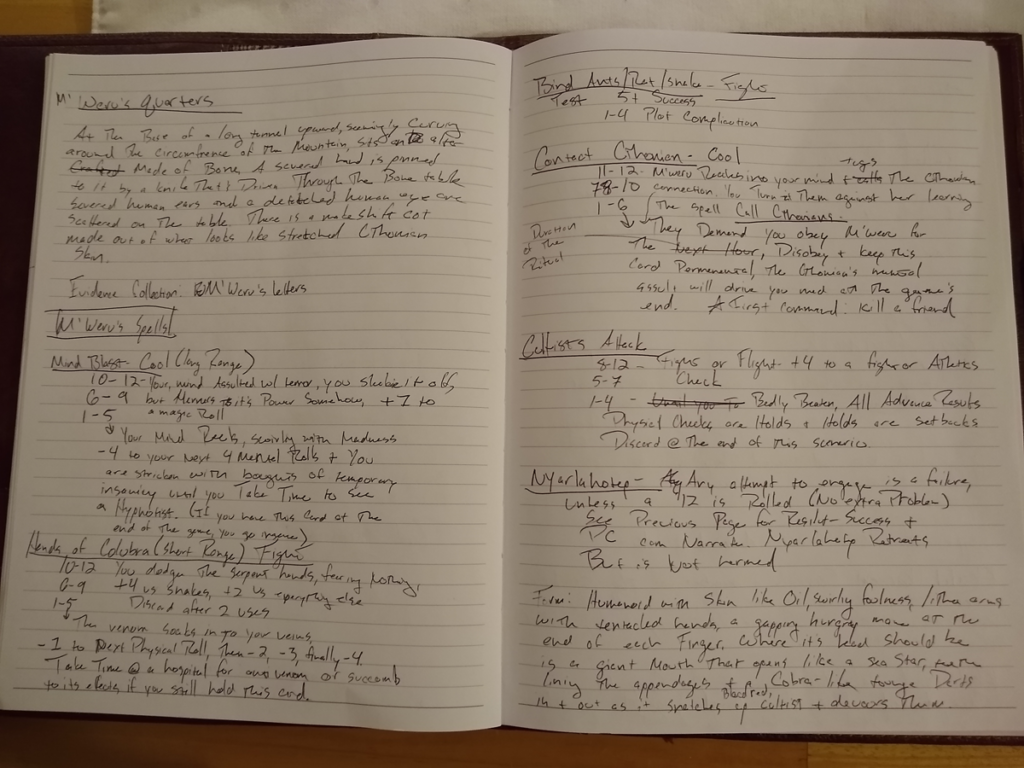 M'Weru's Quarters
At The Base of a long tunnel upward, seemingly Curving
around The circumfrence of The Mountain, sits an
Made of Bone. A severed hand is pinned
to it by a knife That's Driven Through The Bone table
Severed human ears and a detatched human eye are
Scattered on The table. There is a makeshift cot
made out of what looks like stretched Cthonian
Skin.
Evidence Collection: M'Weru's Letters
M'Weru's Spells
Mind Blast - Cool (Long Range)
10-12 - Your mind Assulted w/ terror, you shake it off,
6-9 but it's Power Somehow, +1 to
1-5 a magic Roll
Your Mind Reels, swirling with Madness
-4 to your Next 4 Mental Rolls + You
are stricken with bouguts of temporary
insanity until you Take Time to See
a Hypnotist. (If you have This Card at The
end of The game, you go insane)
Hands of Colubra (Short Range) Fight
10-12 You dodge The serpent hands, fearing Nothing,
6-9 +4 vs snakes, +2 vs everything else
1-5 Discard after 2 uses
The venom soaks in to your veins
-1 to Next Physical Roll, Then -2, -3, finally -4.
Take Time @ a hospital for anti venom or succomb
to its effects if you still hold this card.
Bind Ants/Rat/Snake - Fight
Test 5+ Success
1-4 Plot Complication
Contact Cthonian - Cool
11-12 - M'Weru Reaches into your mind The Cthonian
7-10 connection. You Turn Them against her learning
1-6 The spell Call Cthonians.
They Demand you obey M'Weru for
Duration of the Ritual
The Next Hour, Disobey + keep this
Card Permenental, The Cthonian's mental
assult will drive you mad at The game's
end. First command: Kill a friend
Cultists Attack
8-12 - Fight or Flight +4 to a fight or Athletics
5-7 Check
1-4 - Until you To Badly Beaten, All Advance Results
Physical Checks are Holds + Holds are setbacks
Discard @ The end of This scenerio.
Nyarlahotep - Any attempt to engage is a failure,
unless a 12 is Rolled (No extra Problem)
See Previous Page for Result - Success +
PC can Narrate. Nyarlahotep Retreats
But is Not harmed
Form: Humanoid with Skin like Oil, swirly foulness, lithe arms
with tentacled hands, a gapping hungry maw at the
end of each Finger. Where it's head should be
is a giant Mouth That opens like a sea Star, teeth
lining The appendages + a Blood red, Cobra-like tounge Darts
in + out as it snatches up cultist + devours Them.